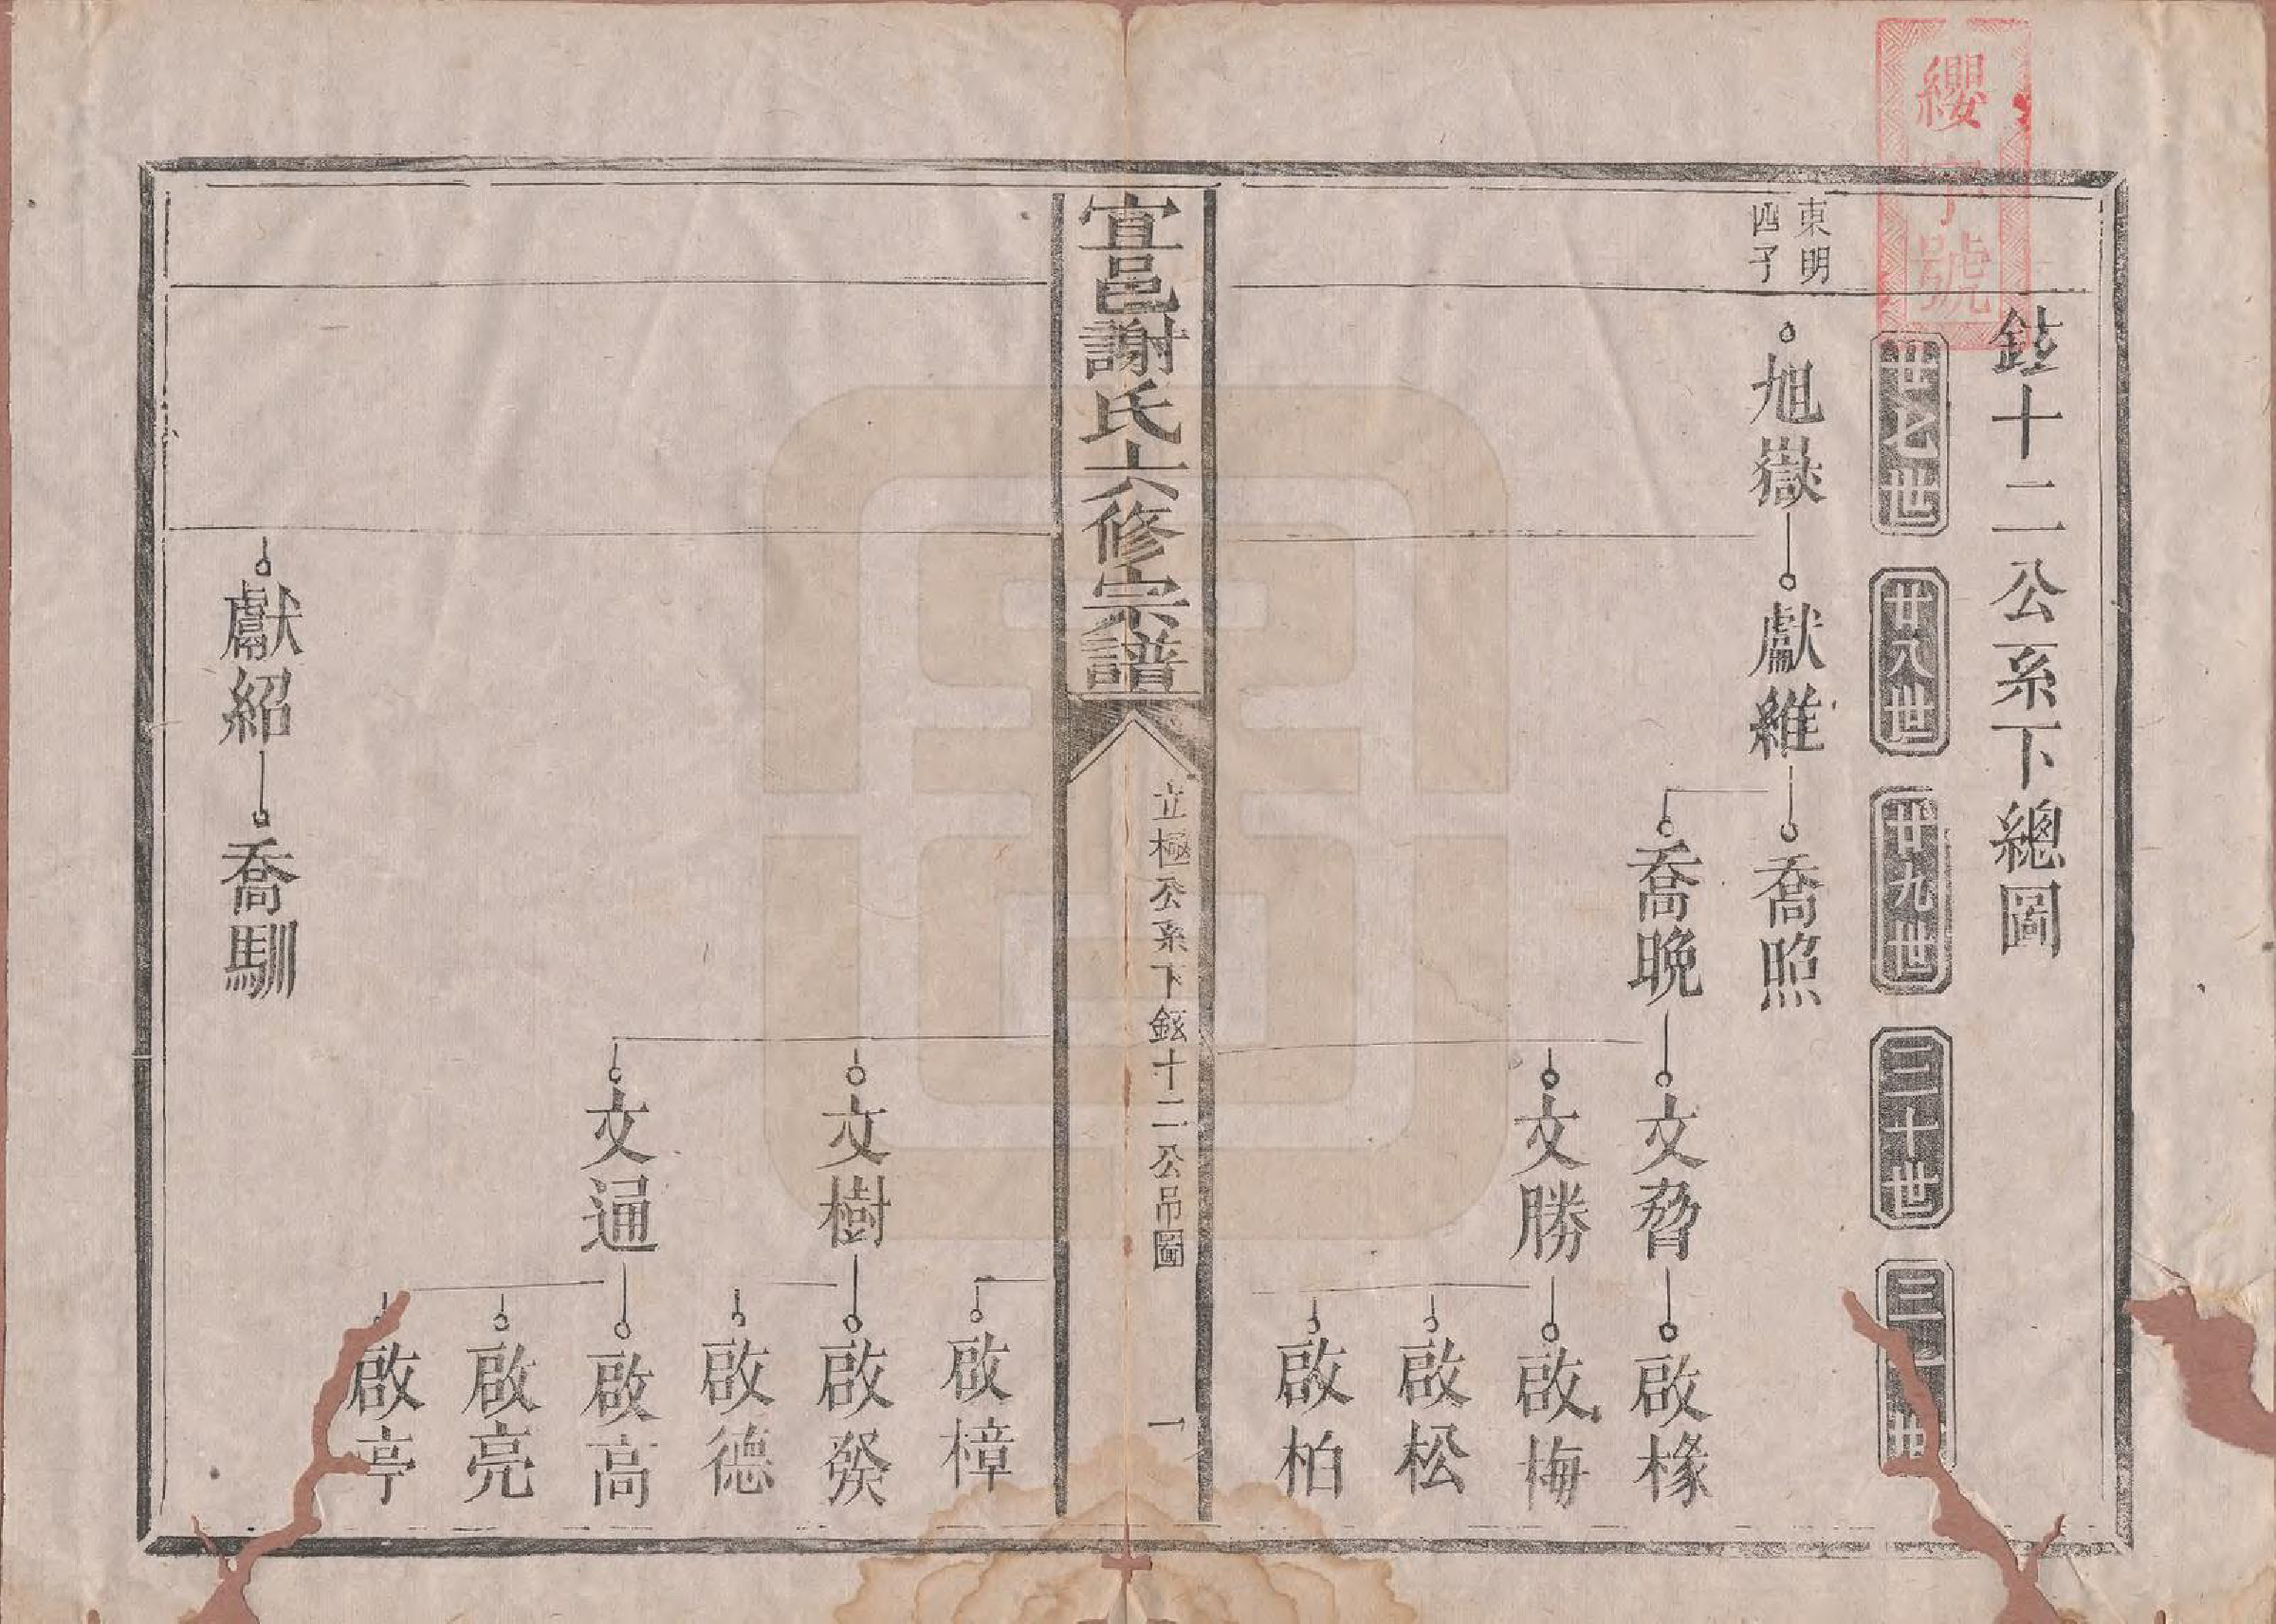 纓字號
鉉十二公系下總圖
廿七世
廿八世
廿九世
三十世
三一世
東明
四子
旭嶽
獻維
喬照
喬晚
文脅
啟椽
文勝
啟梅
啟松
啟柏
宜邑謝氏六修宗譜
立極公系下鉉十二公吊圖
一
啟樟
文樹
啟發
啟德
文通
啟高
啟亮
啟亭
獻紹
喬馴